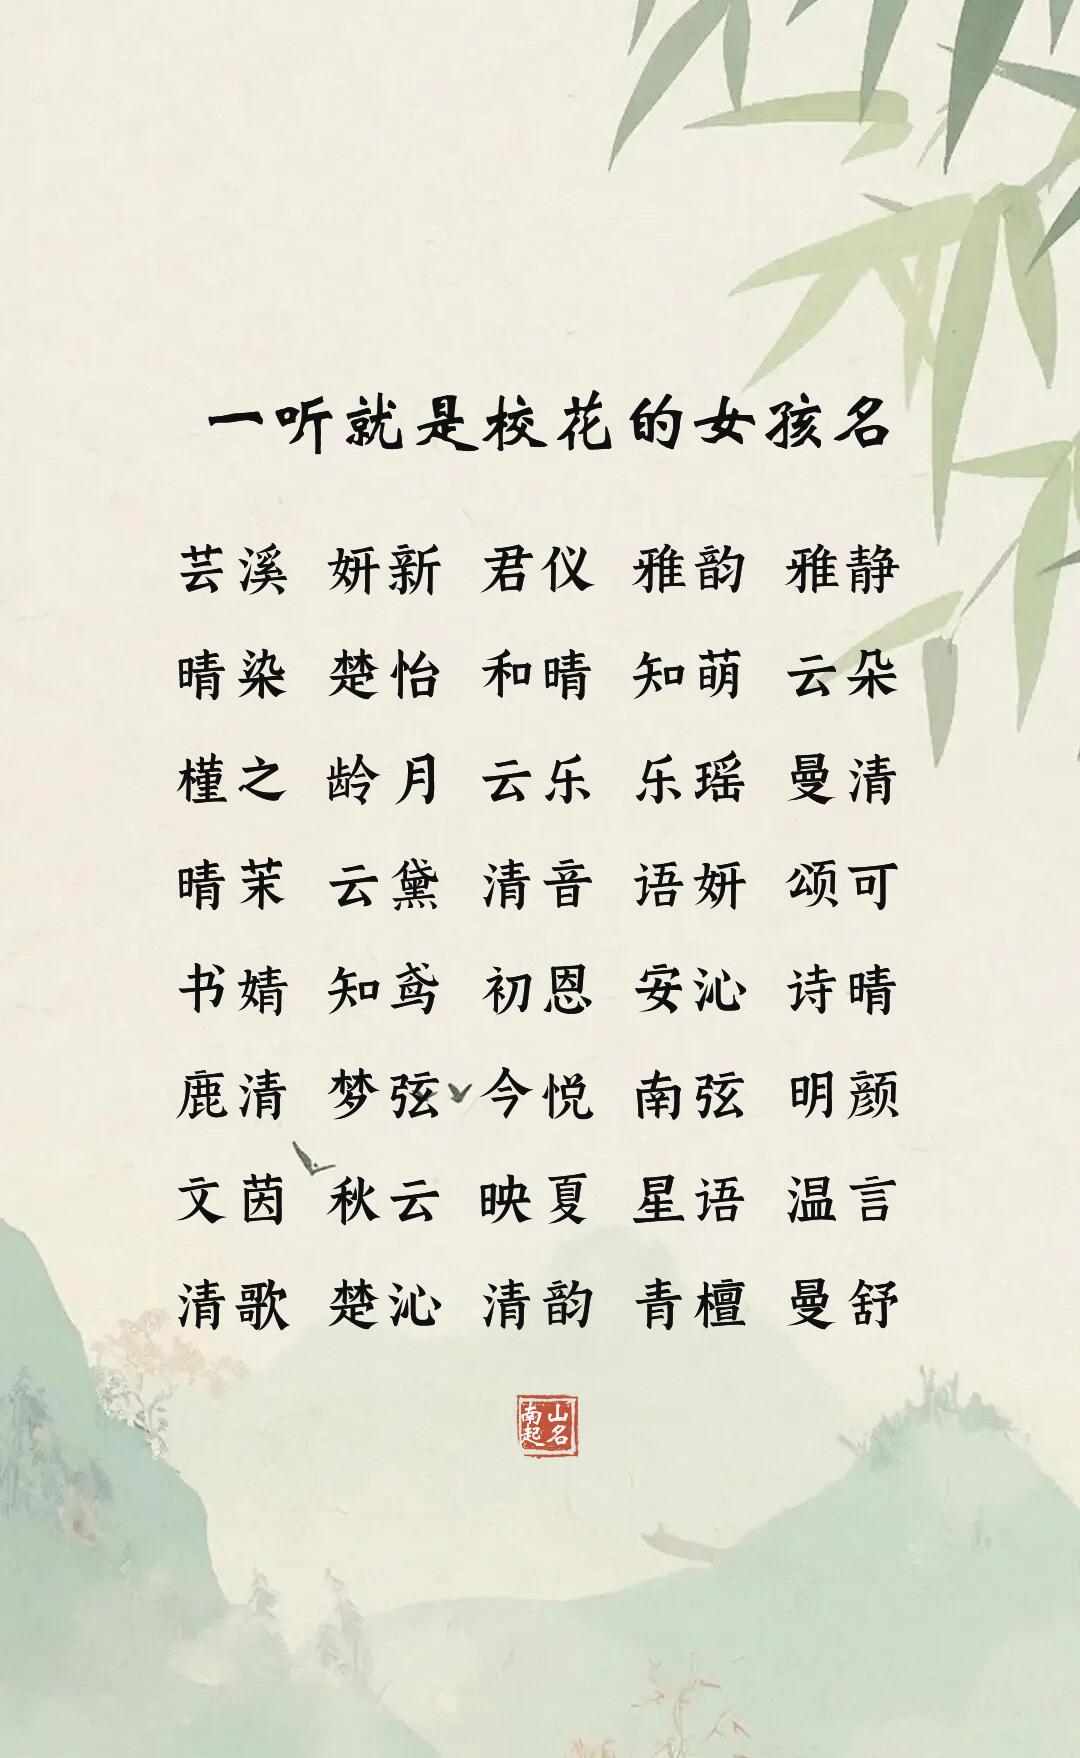 一听就是校花的女孩名
芸溪 妍新 君仪 雅韵 雅静
晴染 楚怡 和晴 知萌 云朵
槿之 龄月 云乐 乐瑶 曼清
晴茉 云黛 清音 语妍 颂可
书婧 知鸢 初恩 安沁 诗晴
鹿清 梦弦 今悦 南弦 明颜
文茵 秋云 映夏 星语 温言
清歌 楚沁 清韵 青檀 曼舒
南山
起名